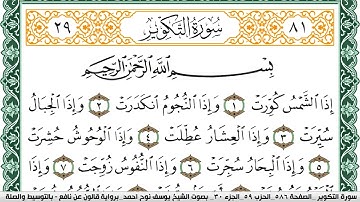 ٨١ سُورَةُ التَّكْوِيرِ ٢٩
بِسْمِ اللَّهِ الرَّحْمَٰنِ الرَّحِيمِ
إِذَا الشَّمْسُ كُوِّرَتْ ١ وَإِذَا النُّجُومُ انكَدَرَتْ ٢ وَإِذَا الْجِبَالُ
سُيِّرَتْ ٣ وَإِذَا الْعِشَارُ عُطِّلَتْ ٤ وَإِذَا الْوُحُوشُ حُشِرَتْ
٥ وَإِذَا الْبِحَارُ سُجِّرَتْ ٦ وَإِذَا النُّفُوسُ زُوِّجَتْ ٧ وَإِذَا
سورة التكوير الصفحة ٥٨٦ الحزب ٥٩ الجزء ٣٠ بصوت الشيخ يوسف نوح احمد برواية قالون عن نافع - بالتوسيط والصلة